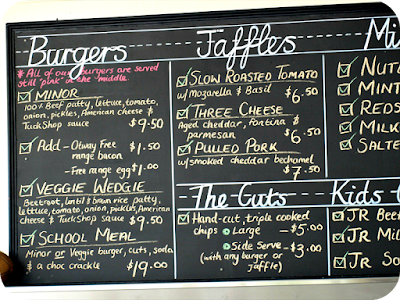 Burgers
* All of our burgers are served
still "pink" in the middle.
MINOR
100% Beef patty, lettuce, tomato,
onion, pickles, American cheese &
TuckShop sauce $9.50
Add - Otway Free $1.50
range bacon
- Free range egg $1.00
VEGGIE WEDGIE
Beetroot, lentil & brown rice patty,
lettuce, tomato, onion, pickles, American
cheese & TuckShop sauce $9.50
SCHOOL MEAL
Minor or Veggie burger, cuts, soda
& a choc crackle $19.00
Jaffles
SLOW ROASTED TOMATO
w/ Mozarella & Basil $6.50
THREE CHEESE
Aged cheddar, fontina &
parmesan $6.50
PULLED PORK
w/ smoked cheddar bechamel
$7.50
The Cuts
Hand-cut, triple cooked
chips Large - $5.00
Side Serve - $3.00
(with any burger or
jaffle)
Mi
NUT
MINT
REDS
MILK
SALTE
Kids
JR Bee
JR Mil
JR So